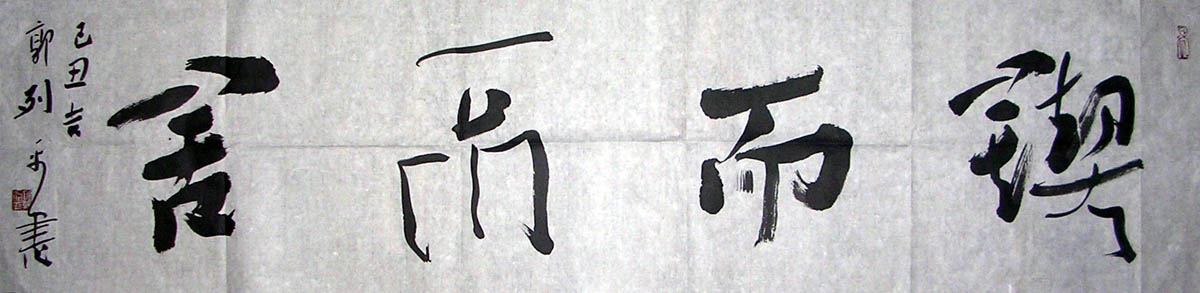 锲而不舍
己丑吉
郭列平書